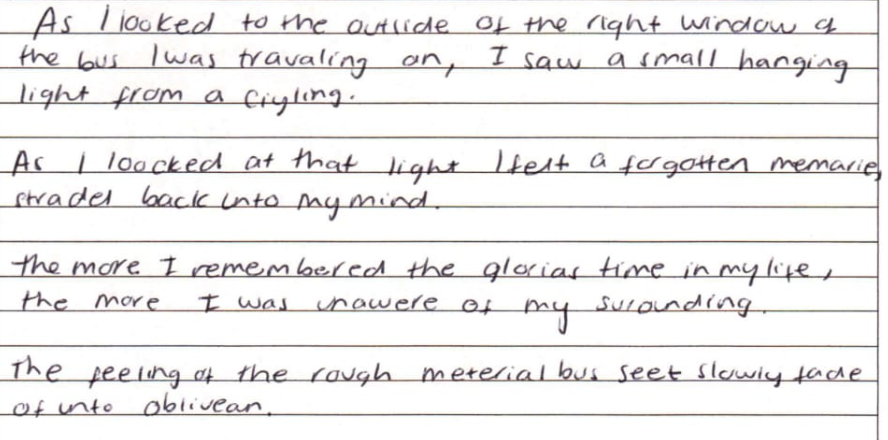 As I looked to the outside of the right window of
the bus I was travaling on, I saw a small hanging
light from a ciyling.
As I loocked at that light I felt a forgotten memarie,
stradel back into my mind.
the more I remembered the glorias time in my life,
the more I was unawere of my surounding.
The feeling of the rough meterial bus seet slowly fade
of unto oblivean.